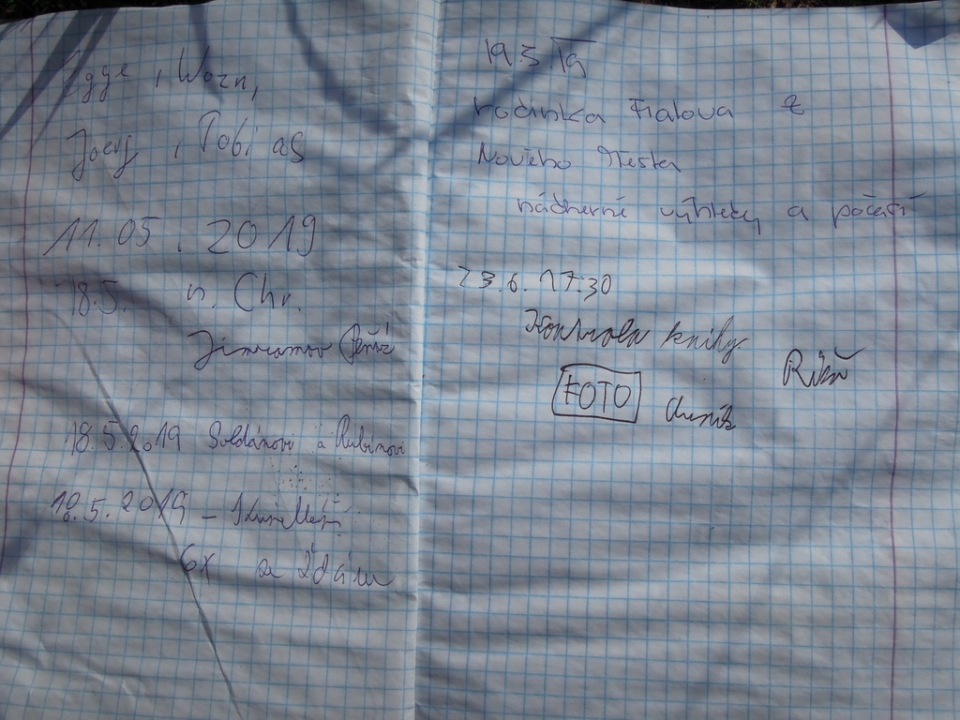 Jgge, Wozn,
Joerg, Tobias
11.05.2019
18.5. n. Chr.
Jimramov
18.5.2019 Soldánovi a Rubínovi
19.5.2019 -
6x ze Žďáru
19.5.19
rodinka Fialova z
Nového Města
nádherné výhledy a počasí
23.6. 17:30
Kontrola knihy
FOTO